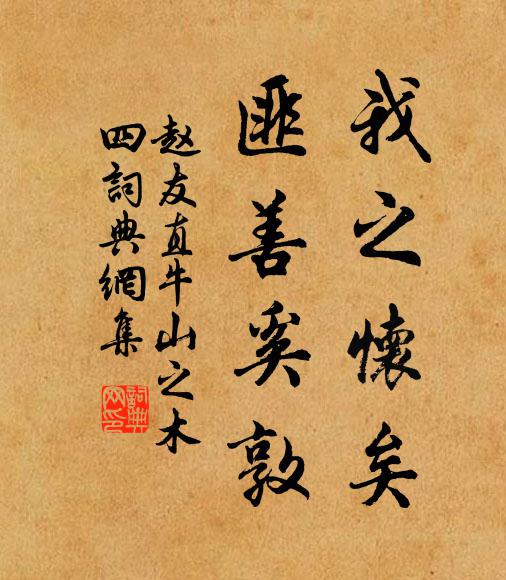 我之懷矣
匪善奚敦
赵友直牛山之木
四詞典網集
詞典
网印